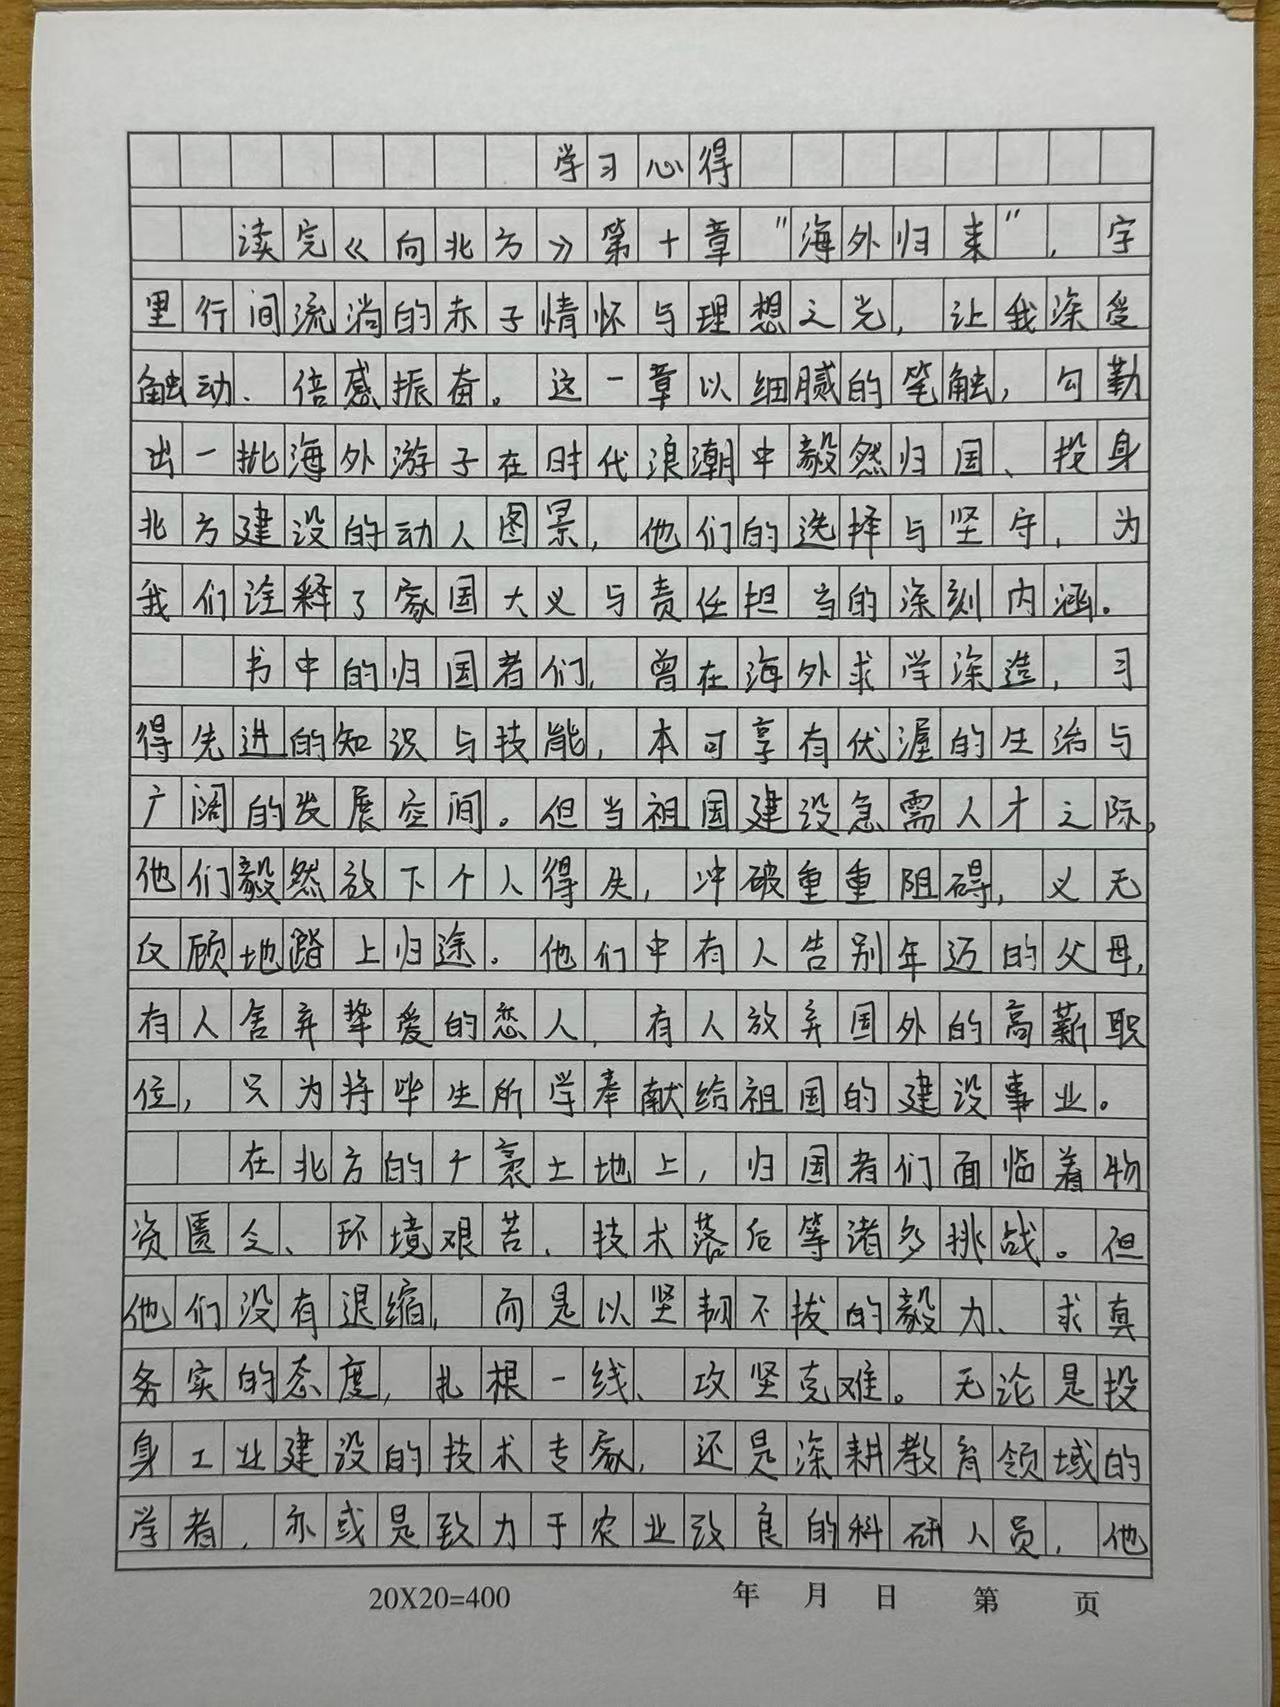 学习心得
读完《向北方》第十章“海外归来”，字
里行间流淌的赤子情怀与理想之光，让我深受
触动、倍感振奋。这一章以细腻的笔触，勾勒
出一批海外游子在时代浪潮中毅然归国、投身
北方建设的动人图景，他们的选择与坚守，为
我们诠释了家国大义与责任担当的深刻内涵。
书中的归国者们，曾在海外求学深造，习
得先进的知识与技能，本可享有优渥的生活与
广阔的发展空间。但当祖国建设急需人才之际，
他们毅然放下个人得失，冲破重重阻碍，义无
反顾地踏上归途。他们中有人告别年迈的父母，
有人舍弃挚爱的恋人，有人放弃国外的高薪职
位，只为将毕生所学奉献给祖国的建设事业。
在北方的广袤土地上，归国者们面临着物
资匮乏、环境艰苦、技术落后等诸多挑战。但
他们没有退缩，而是以坚韧不拔的毅力、求真
务实的态度，扎根一线、攻坚克难。无论是投
身工业建设的技术专家，还是深耕教育领域的
学者，亦或是致力于农业改良的科研人员，他
20X20=400 年 月 日 第 页